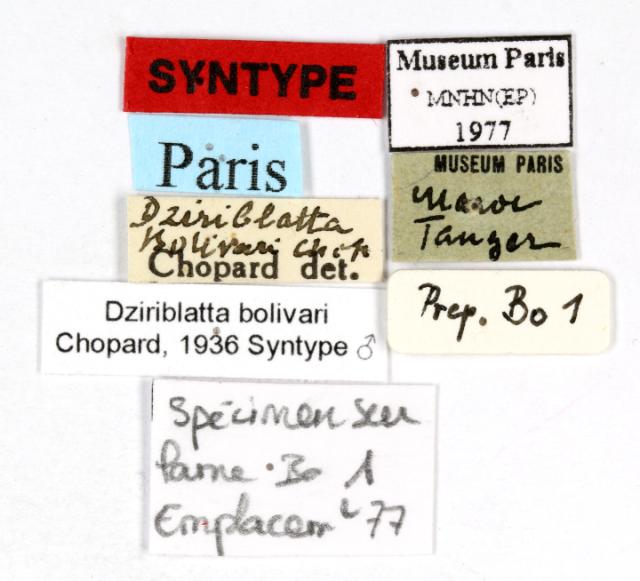 SYNTYPE
Museum Paris
MNHN(EP)
1977
Paris
MUSEUM PARIS
Maroc
Tanger
Dziriblatta
Bolivari Chop
Chopard det.
Prep. Bo 1
Dziriblatta bolivari
Chopard, 1936 Syntype ♂
Spécimen sur
lame Bo 1
Emplacemt 77